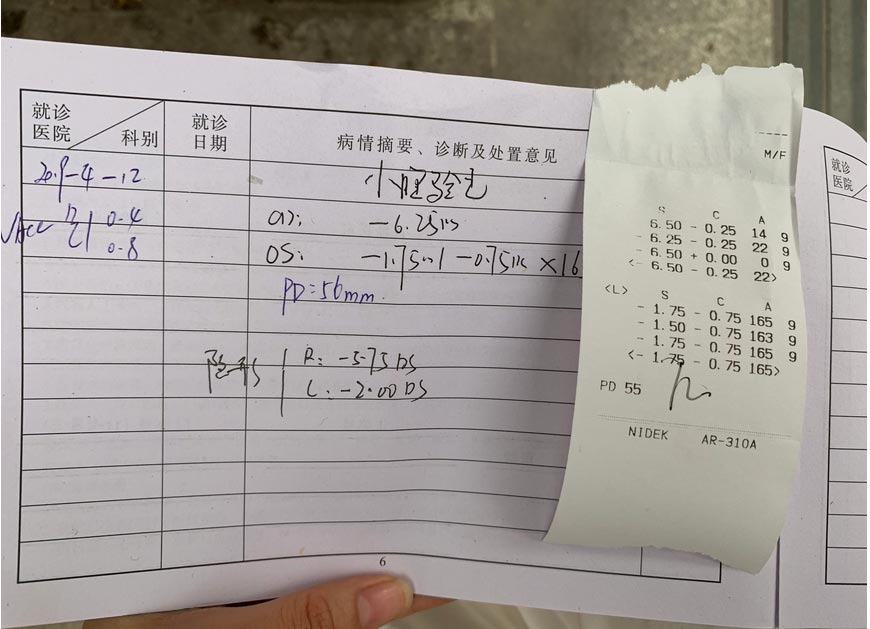 就诊
医院
科别
就诊
日期
病情摘要、诊断及处置意见
2019-4-12
小瞳验光
VAcc
0.4
0.8
OD: -6.25DS
OS: -1.75DS/-0.75DC×16
PD=56mm.
隐形
R: -5.75DS
L: -2.00DS
6
M/F
S C A
6.50 - 0.25 14 9
- 6.25 - 0.25 22 9
- 6.50 + 0.00 0 9
<- 6.50 - 0.25 22>
<L> S C A
- 1.75 - 0.75 165 9
- 1.50 - 0.75 163 9
- 1.75 - 0.75 165 9
<- 1.75 - 0.75 165>
PD 55
NIDEK AR-310A
就诊
医院